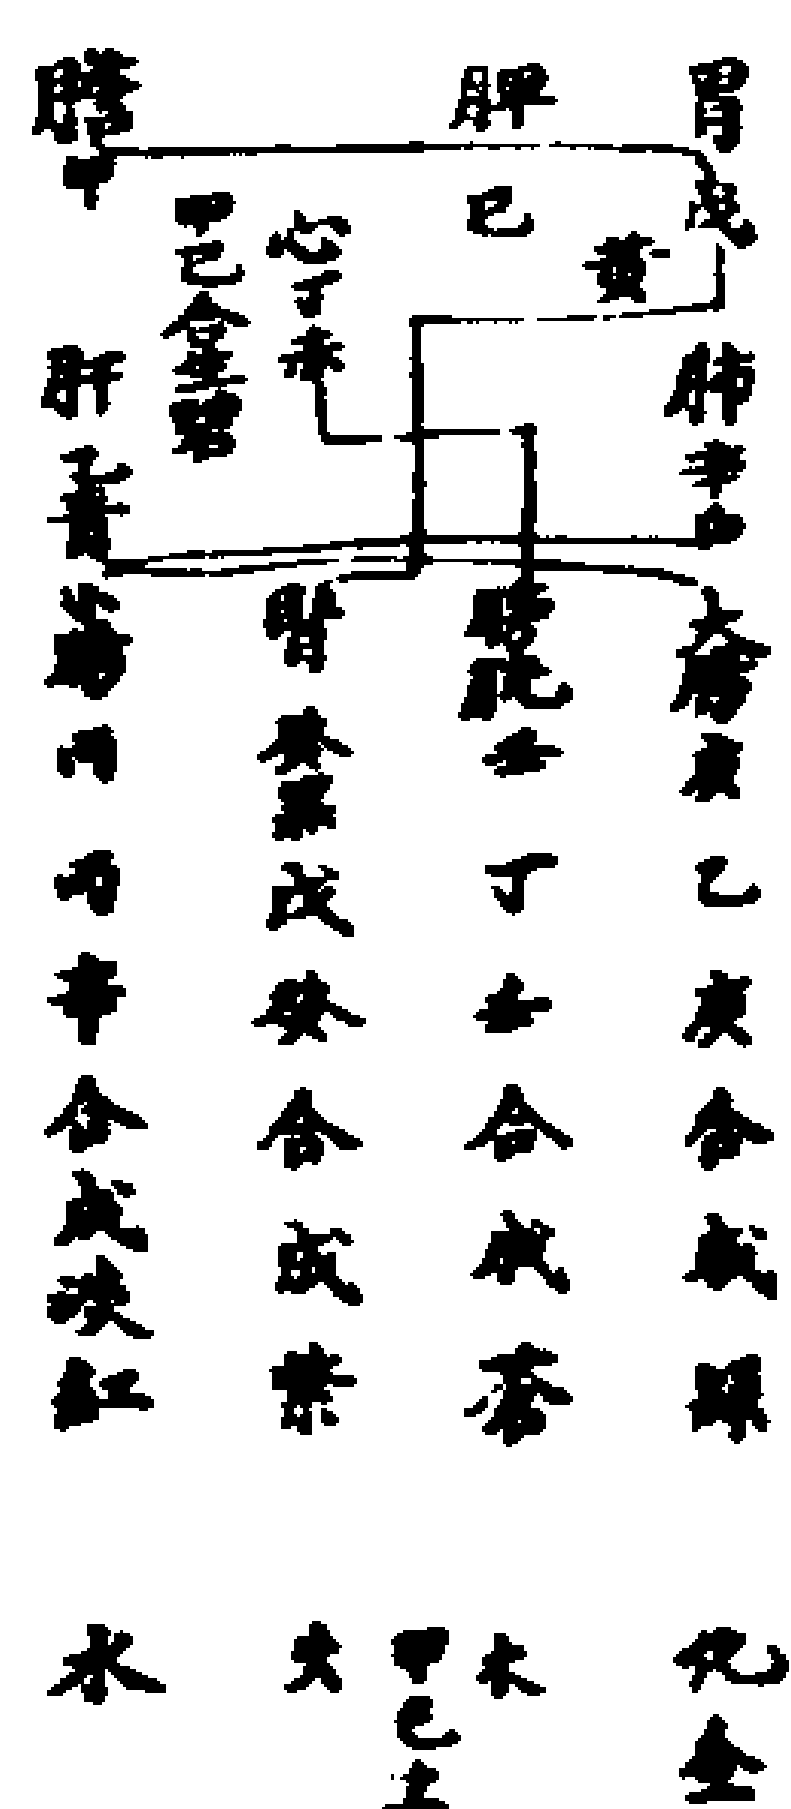 胃
戊
黃
肺
辛
白
大腸
庚
乙
庚
合
成
化
金
脾
己
膀胱
壬
丁
壬
合
成
蒼
木
甲
己
土
心
丁
赤
腎
癸
黑
戊
癸
合
成
紫
火
甲己合生碧
膽
甲
肝
乙
青
小腸
丙
丙
辛
合
成
淡
紅
水